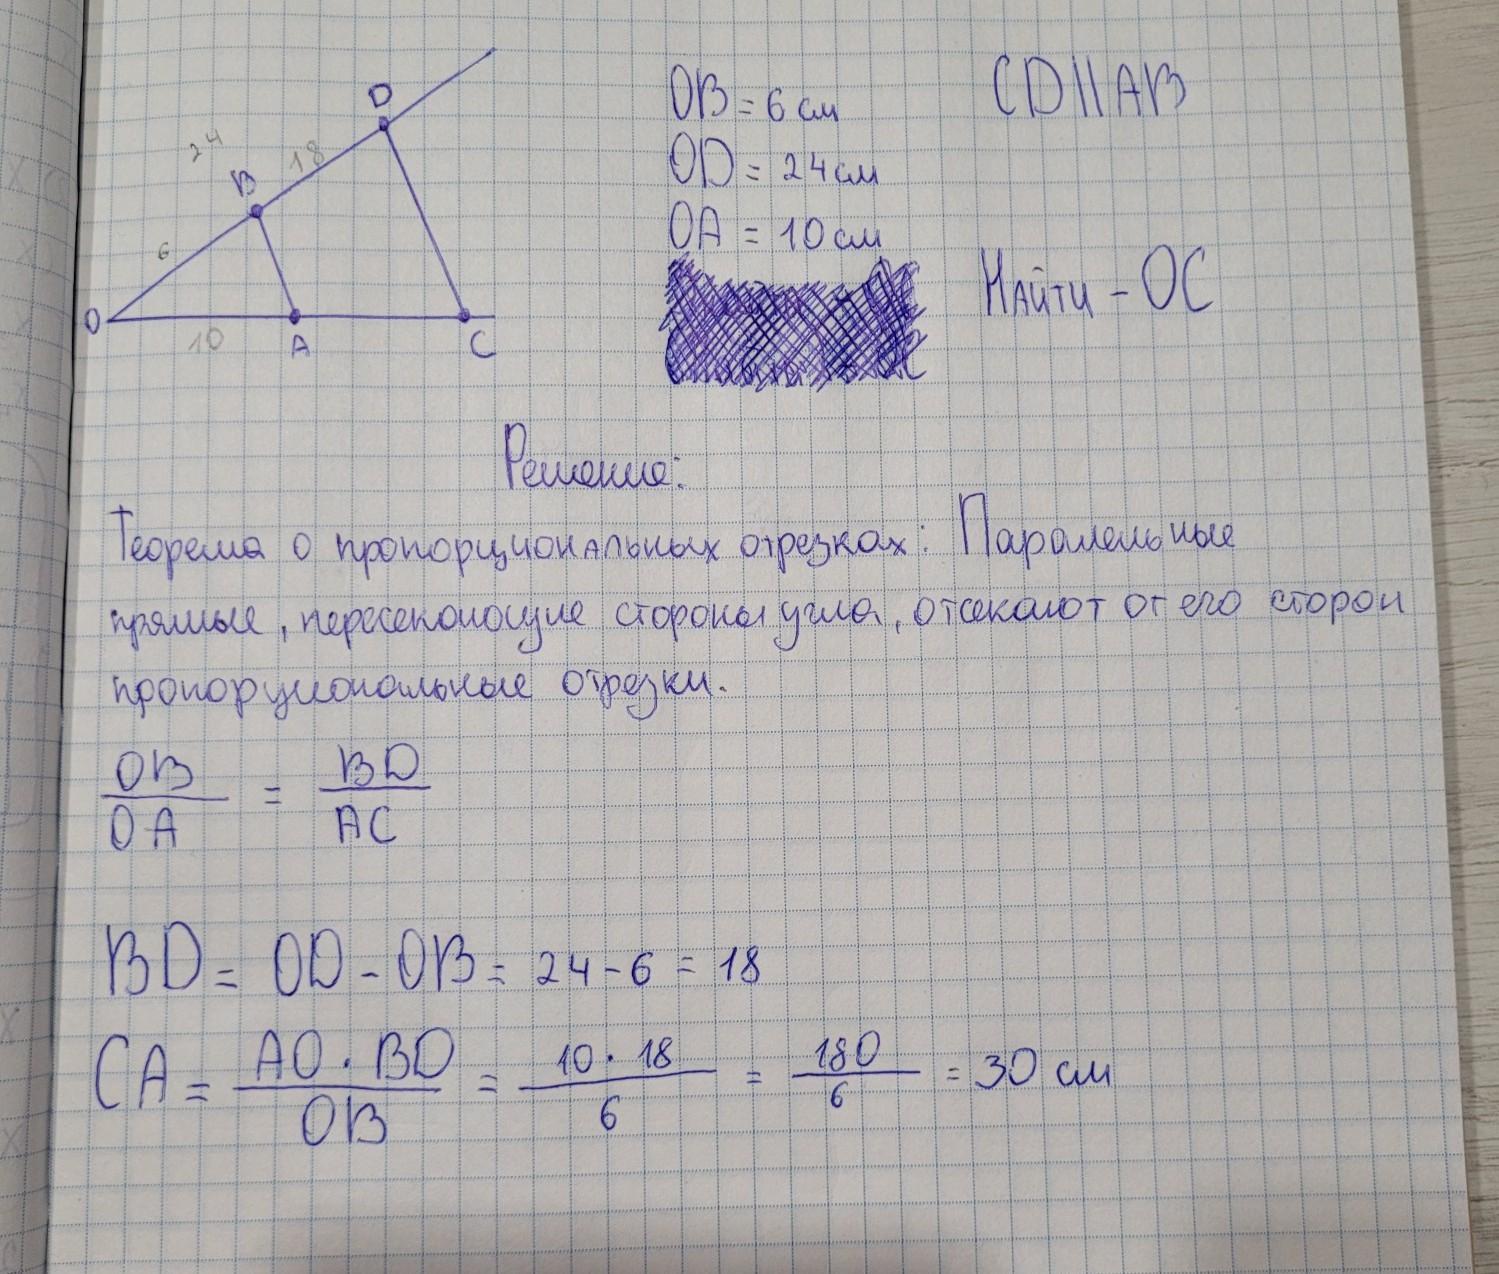 D
24
18
B
6
O
10
A
C
OB = 6 см
OD = 24 см
OA = 10 см
CD||AB
Найти - OC
Решение:
Теорема о пропорциональных отрезках: Паралельные
прямые, пересекающие стороны угла, отсекают от его сторон
пропорциональные отрезки.
OB / OA = BD / AC
BD = OD - OB = 24 - 6 = 18
CA = AO · BD / OB = 10 · 18 / 6 = 180 / 6 = 30 см